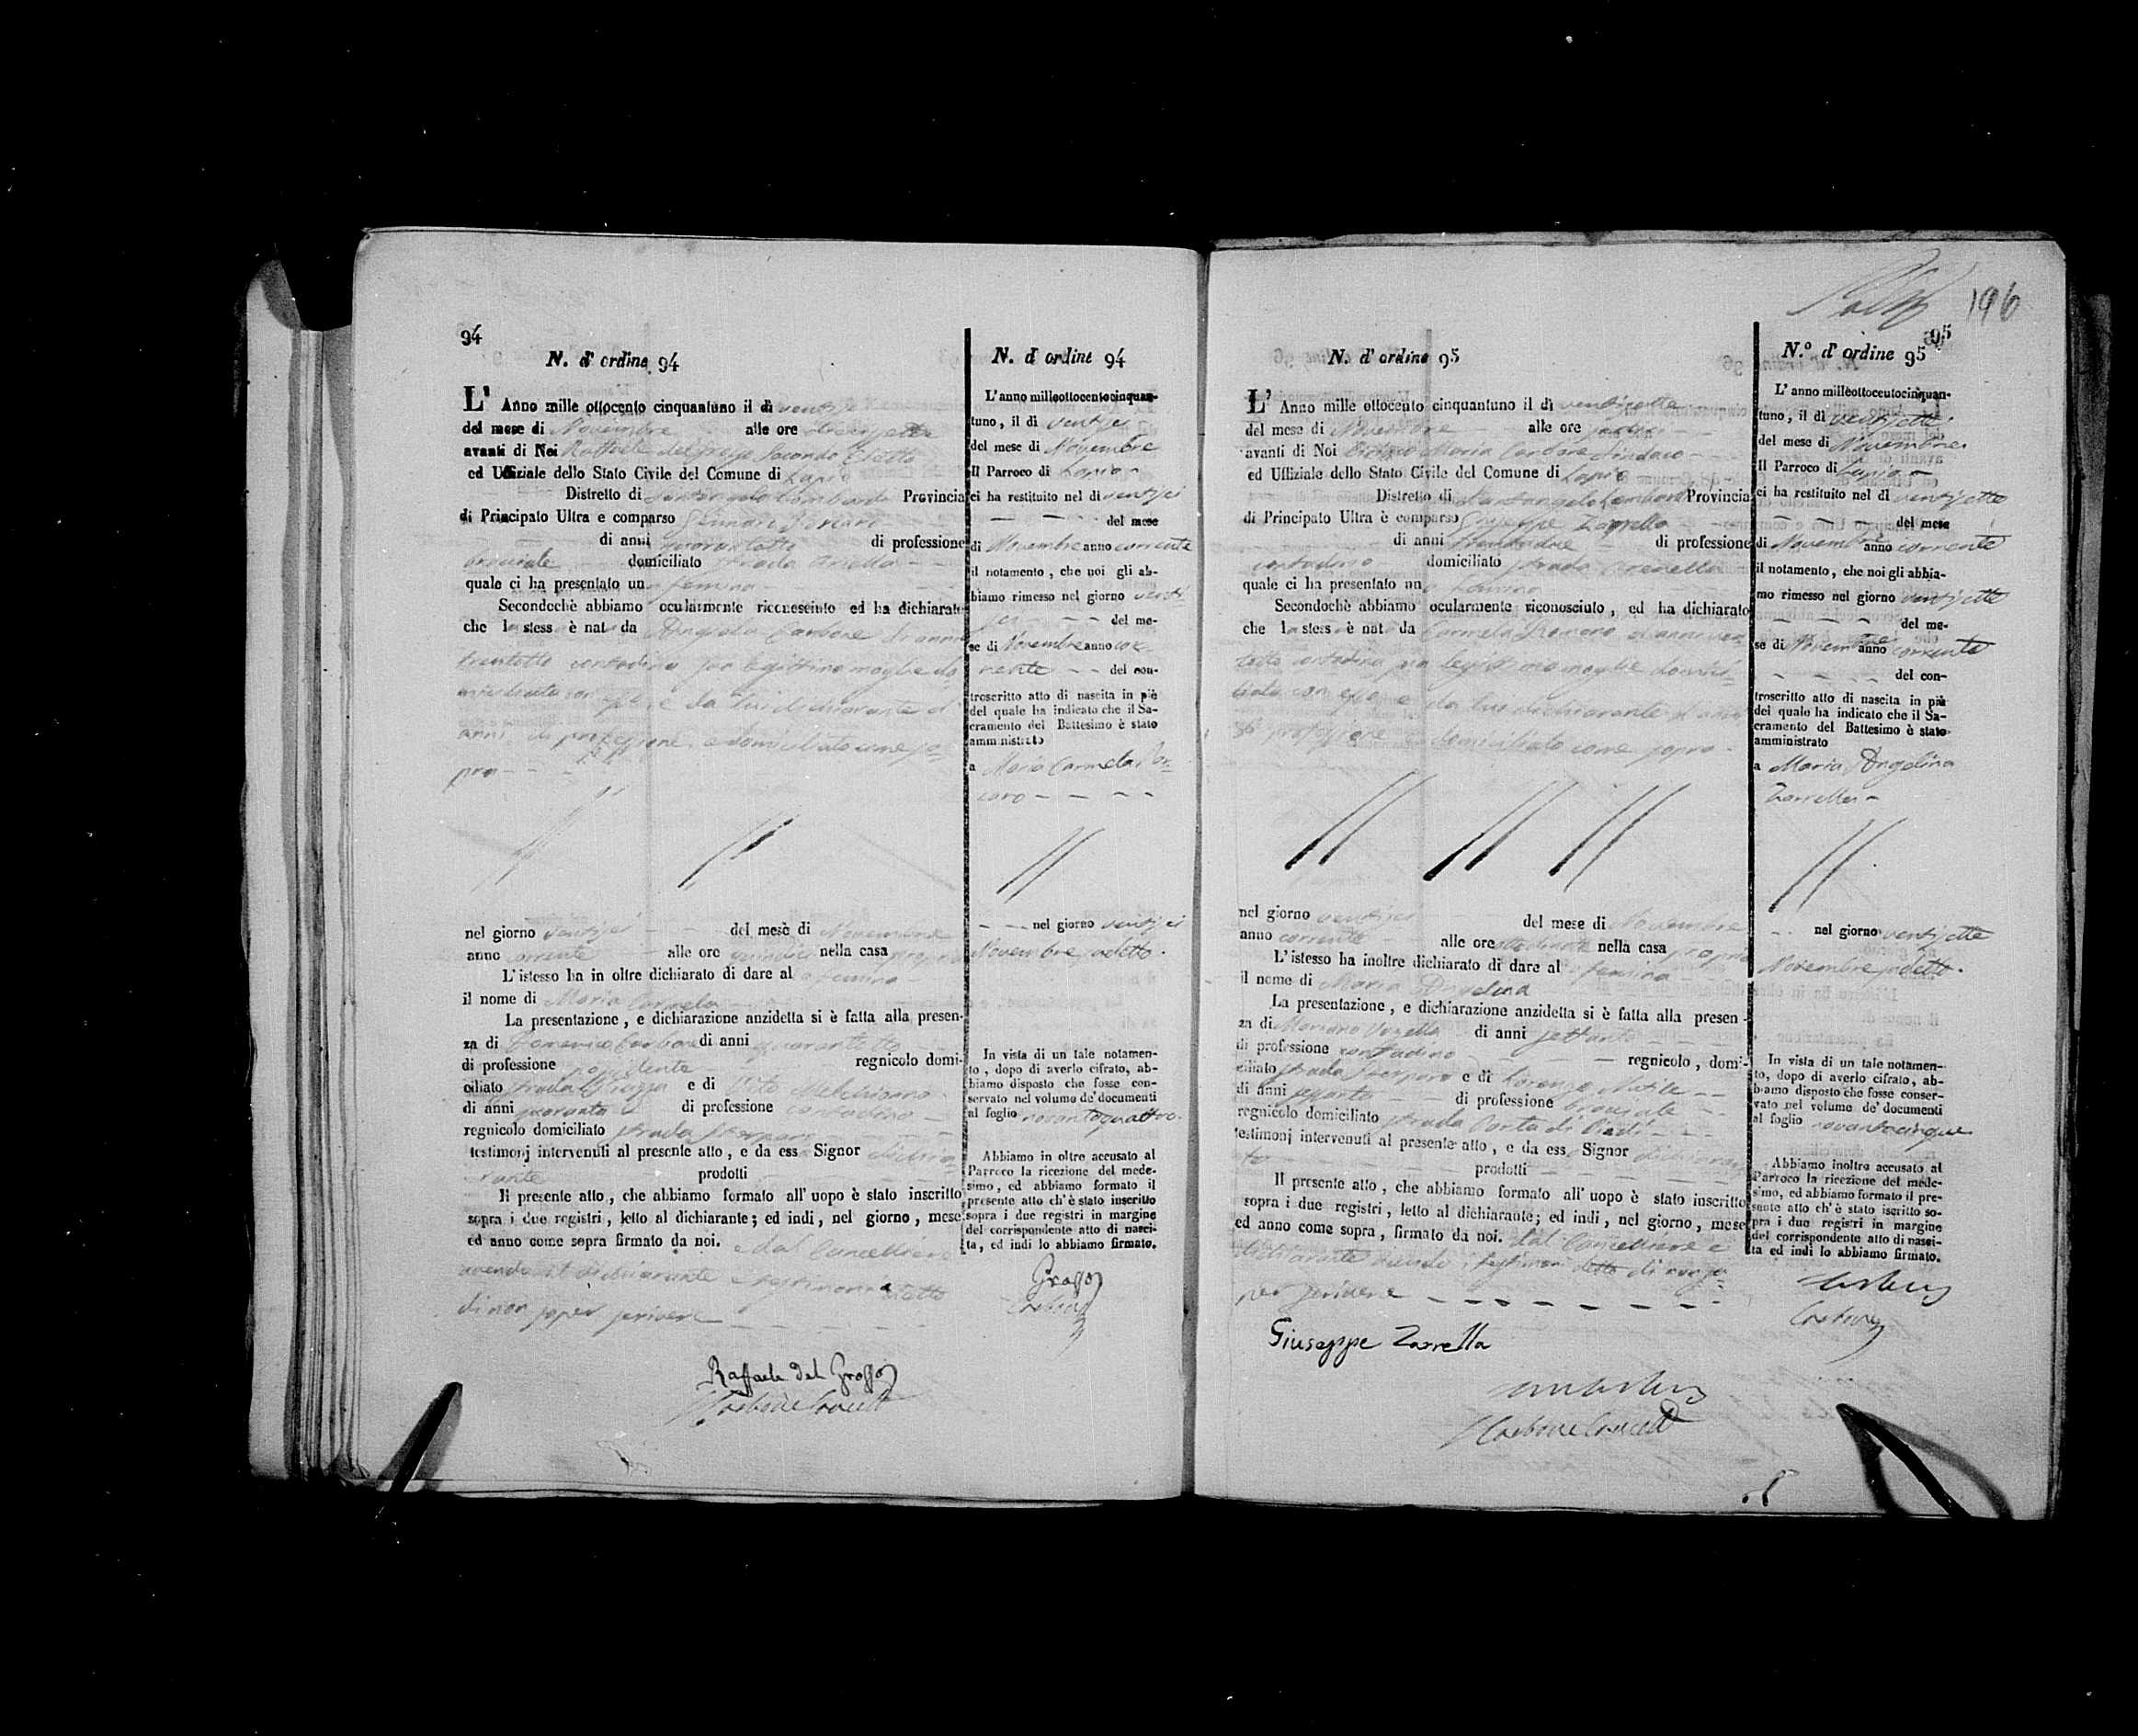 94
N. d' ordine 94
L' Anno mille ottocento cinquantuno il dì ventisei
del mese di Novembre alle ore diecisette
avanti di Noi Raffaele del Grosso Secondo Eletto
ed Uffiziale dello Stato Civile del Comune di Lapio
Distretto di Santangelo Lombardi Provincia
di Principato Ultra e comparso
di anni quarantotto di professione
bracciale domiciliato strada Arenella
quale ci ha presentato una femina
Secondochè abbiamo ocularmente riconosciuto ed ha dichiarato
che la stess è nat da Angiola Carbone di anni
trentotto contadina sua legittima moglie do
miciliata con esso e da lui dichiarante di
anni di professione e domiciliato come so
pra
nel giorno ventisei del mese di Novembre
anno corrente alle ore quindici nella casa propria
L'istesso ha in oltre dichiarato di dare al a femina
il nome di Maria Carmela
La presentazione, e dichiarazione anzidetta si è fatta alla presen-
za di Domenico Carbone di anni quarantotto
di professione possidente regnicolo domi-
ciliato strada e di Vito
di anni quaranta di professione contadino
regnicolo domiciliato strada
testimonj intervenuti al presente atto, e da ess Signor dichia
rante prodotti
Il presente atto, che abbiamo formato all' uopo è stato inscritto
sopra i due registri, letto al dichiarante; ed indi, nel giorno, mese
ed anno come sopra firmato da noi. e dal Cancelliere
avendo il dichiarante e testimoni detto
di non saper scrivere
Raffaele Del Grosso
N. d' ordine 94
L' anno milleottocentocinquan-
tuno, il dì ventisei
del mese di Novembre
Il Parroco di Lapio
ci ha restituito nel dì ventisei
del mese
di Novembre anno corrente
il notamento, che noi gli ab-
biamo rimesso nel giorno venti
sei del me-
se di Novembre anno cor
rente del con-
troscritto atto di nascita in piè
del quale ha indicato che il Sa-
cramento del Battesimo è stato
amministrato
a Maria Carmela Por
caro
nel giorno ventisei
Novembre sudetto.
In vista di un tale notamen-
to, dopo di averlo cifrato, ab-
biamo disposto che fosse con-
servato nel volume de' documenti
al foglio novantaquattro.
Abbiamo in oltre accusato al
Parroco la ricezione del mede-
simo, ed abbiamo formato il
presente atto ch' è stato inscritto
sopra i due registri in margine
del corrispondente atto di nasci-
ta, ed indi lo abbiamo firmato.
Grosso
196
95
N. d' ordine 95
L' Anno mille ottocento cinquantuno il dì ventisette
del mese di Novembre alle ore sedici
avanti di Noi Maria Carbone Sindaco
ed Uffiziale dello Stato Civile del Comune di Lapio
Distretto di Santangelo Lombardi Provincia
di Principato Ultra è comparso Giuseppe Zarrella
di anni di professione
contadino domiciliato strada Arenella
quale ci ha presentato una femina
Secondochè abbiamo ocularmente riconosciuto, ed ha dichiarato
che la stess è nat da Carmela di anni ven
totto contadina sua legittima moglie domici
liata con esso e da lui dichiarante di anni
di professione domiciliato come sopra
nel giorno ventisei del mese di Novembre
anno corrente alle ore nella casa propria
L'istesso ha inoltre dichiarato di dare al a femina
il nome di Maria Angelina
La presentazione, e dichiarazione anzidetta si è fatta alla presen-
za di Mariano di anni settanta
di professione contadino regnicolo, domi-
ciliato strada e di Lorenzo
di anni di professione bracciale
regnicolo domiciliato strada Porta di Piedi
testimonj intervenuti al presente atto, e da ess Signor dichiaran
te prodotti
Il presente atto, che abbiamo formato all' uopo è stato inscritto
sopra i due registri, letto al dichiarante; ed indi, nel giorno, mese
ed anno come sopra, firmato da noi. dal Cancelliere e
dichiarante avendo i testimoni detto di non sa
per scrivere
Giuseppe Zarrella
N.° d' ordine 95
L' anno milleottocentocinquan-
tuno, il dì ventisette
del mese di Novembre
Il Parroco di Lapio
ci ha restituito nel dì ventisette
del mese
di Novembre anno corrente
il notamento, che noi gli abbia-
mo rimesso nel giorno ventisette
del me-
se di Novembre anno corrente
del con-
troscritto atto di nascita in piè
del quale ha indicato che il Sa-
cramento del Battesimo è stato
amministrato
a Maria Angelina
Zarrella
nel giorno ventisette
Novembre sudetto.
In vista di un tale notamen-
to, dopo di averlo cifrato, ab-
biamo disposto che fosse conser-
vato nel volume de' documenti
al foglio novantacinque
Abbiamo inoltre accusato al
Parroco la ricezione del mede-
simo, ed abbiamo formato il pre-
sente atto ch' è stato iscritto so-
pra i due registri in margine
del corrispondente atto di nasci-
ta ed indi lo abbiamo firmato.